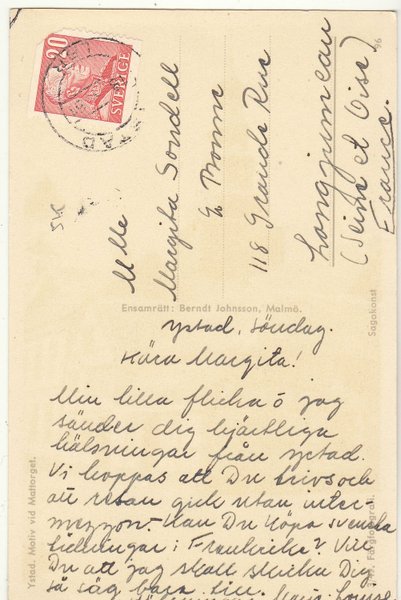 20
SVERIGE
YSTAD
Mlle
Margita Sondell
118 Grande Rue
Longjumeau
(Seine et Oise)
France.
96
Ensamrätt: Berndt Johnsson, Malmö.
Sagokonst
Ystad. Motiv vid Mattorget.
Ystad, Söndag.
Kära Margita!
Min lilla flicka o jag
sänder dig hjärtliga
hälsningar från Ystad.
Vi hoppas att Du trivs och
att resan gick utan inter-
mezzon. Kan Du köpa svenska
tidningar i Frankrike? Vill
Du att jag skall skicka Dig
så säg bara till.